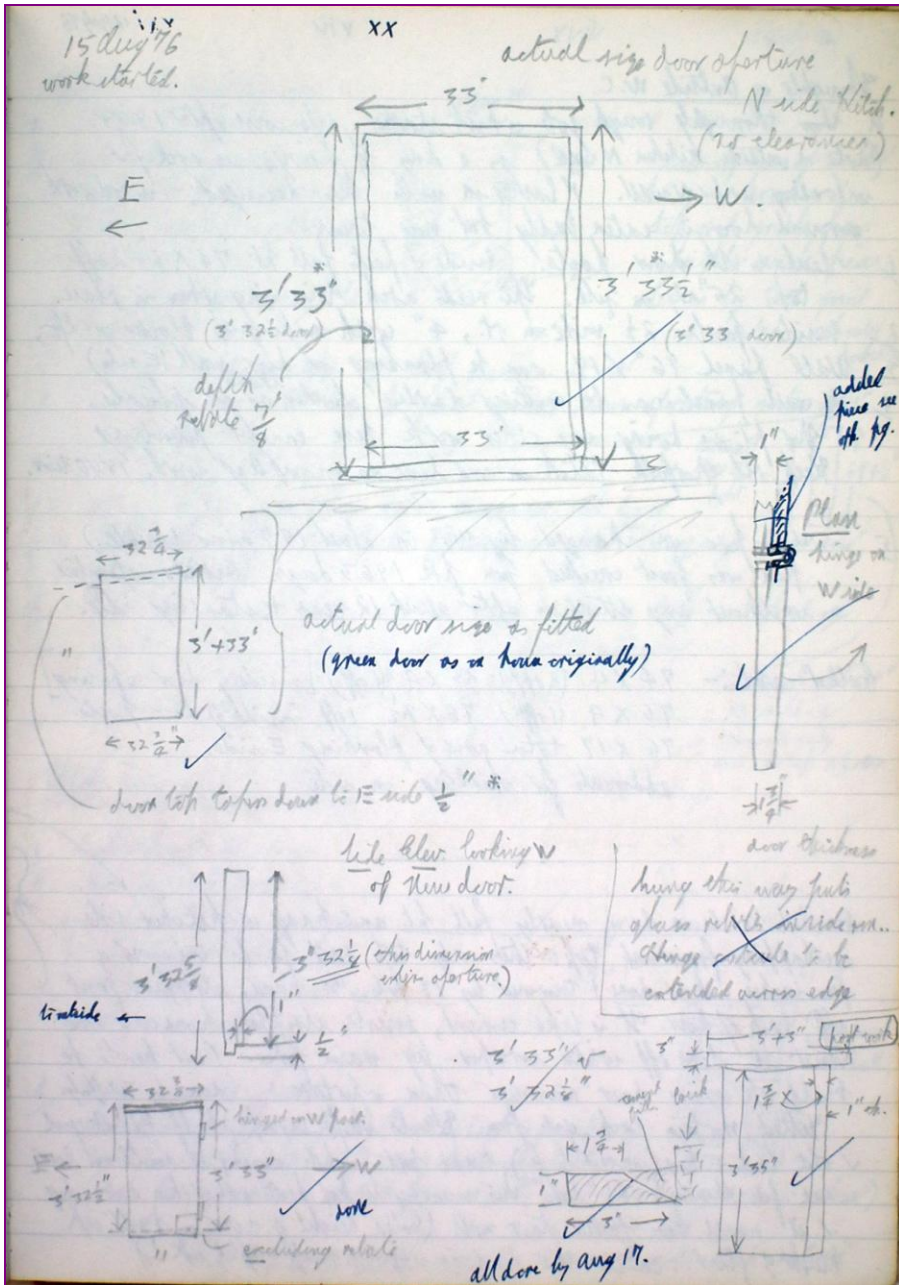 xx
15 Aug 76
work started.
actual size door aperture
N side Kitch.
(no clearances)
33"
E
W.
3' 33"*
(3' 32½ door)
3' 33½"*
(3' 33 door)
depth
rebate 7/8"
33"
added
piece see
opp. pg.
1"
Plan
hinge on
W side
32¾"
3'+33"
"
32¾"
actual door size as fitted
(green door as on house originally)
door top tapers down to E side ½" *
1¾"
door thickness
side Elev. looking W
of New door.
3' 32⅝
3" 32⅛" (this dimension
enters aperture)
½"
hung this way puts
glass rebate inside
Hinge outside to be
extended across edge
3' 33"
3' 32⅛"
hinges on W post.
E
3' 32½"
3' 33"
W
done
"
excluding rebate
3"
3'+3"
post work
brick
1¾
1¾
1"
1"
3' 35"
3"
all done by Aug 17.